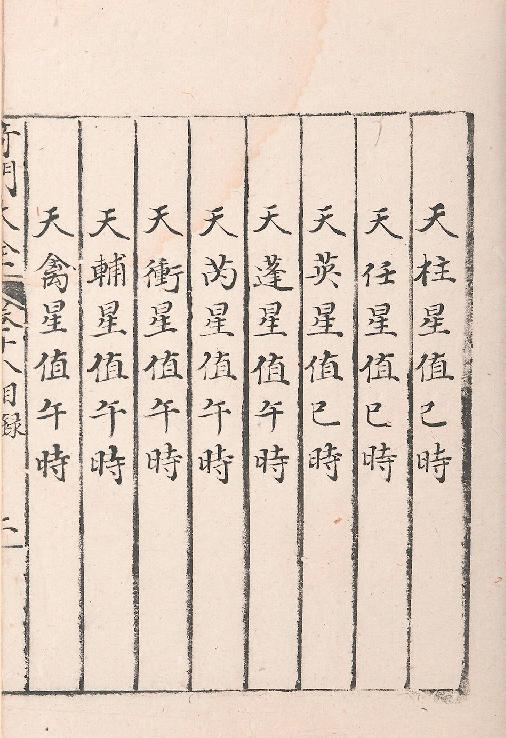 天柱星值巳時
天任星值巳時
天英星值巳時
天蓬星值午時
天芮星值午時
天衝星值午時
天輔星值午時
天禽星值午時
奇門大全 卷十八目錄